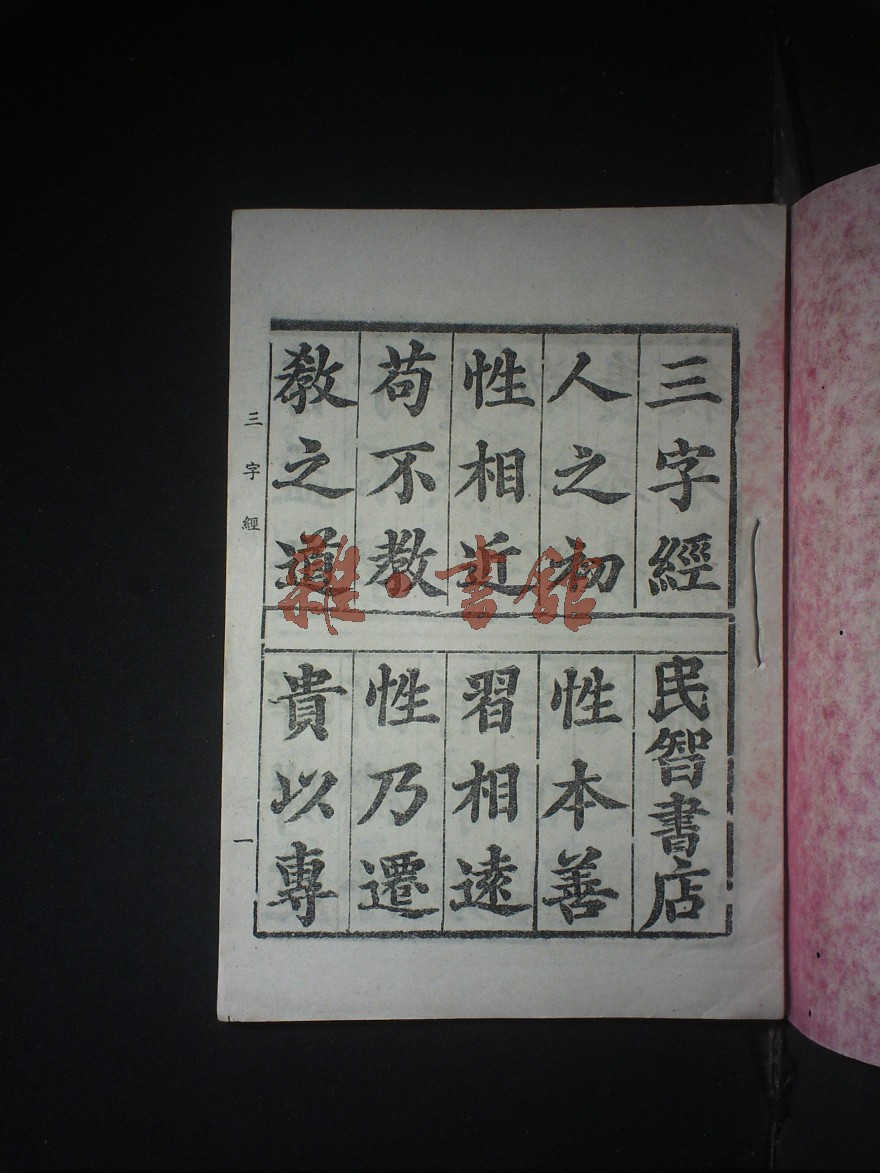 三字經
民智書店
人之初
性本善
性相近
習相遠
苟不教
性乃遷
教之道
貴以專
三字經
一
雜·書館